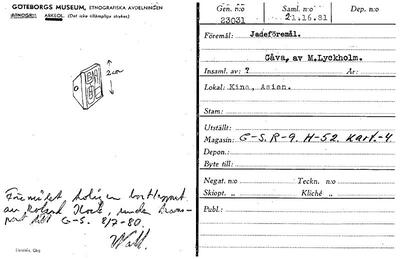 GÖTEBORGS MUSEUM, ETNOGRAFISKA AVDELNINGEN
ETNOGR. ARKEOL. (Det icke tillämpliga strykes)
2 cm
Föremålet troligen bortslappat
av Roland Hock, under trans-
port till G-S. 8/7-80.
Gen. n:o Saml. n:o Dep. n:o
23031 21.16.81
Föremål: Jadeföremål.
Gåva, av M.Lyckholm.
Insaml. av: ? År:
Lokal: Kina, Asien.
Stam:
Utställt:
Magasin: G-S. R-9. H-52. Kart.-4
Depon.:
Byte till:
Negat. n:o Teckn. n:o
Skiopt. „ Kliché „
Publ.: